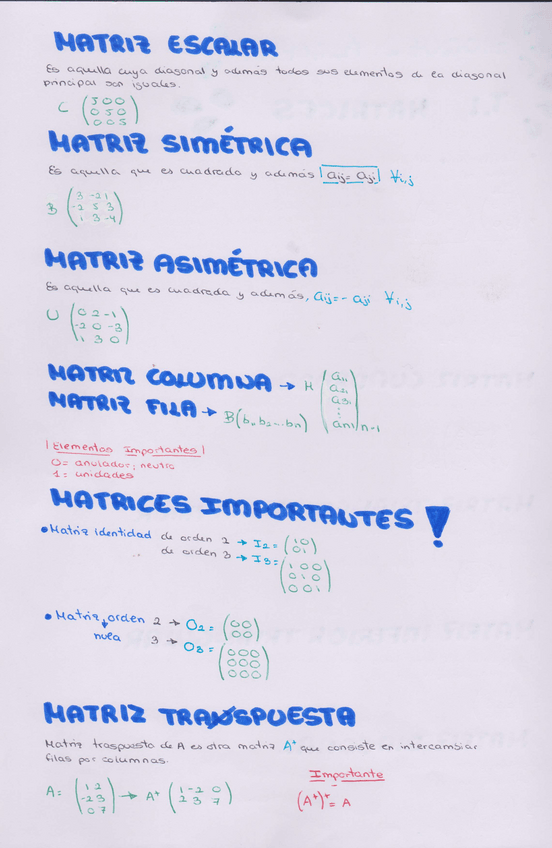 MATRIZ ESCALAR
Es aquella cuya diagonal y además todos sus elementos de la diagonal
principal son iguales.
C (5 0 0
0 5 0
0 0 5)
MATRIZ SIMÉTRICA
Es aquella que es cuadrada y además | aij = aji | ∀i,j
B (3 -2 1
-2 5 3
1 3 -4)
MATRIZ ASIMÉTRICA
Es aquella que es cuadrada y además, aij = - aji ∀i,j
U (0 2 -1
-2 0 -3
1 3 0)
MATRIZ COLUMNA → M (a11
a21
a31
⋮
an1) n-1
MATRIZ FILA → B(b1 b2 ... bn)
| Elementos Importantes |
0 = anulador; neutro
1 = unidades
MATRICES IMPORTANTES !
• Matriz identidad de orden 2 → I2 = (1 0
0 1)
de orden 3 → I3 = (1 0 0
0 1 0
0 0 1)
• Matriz orden 2 → O2 = (0 0
0 0)
nula 3 → O3 = (0 0 0
0 0 0
0 0 0)
MATRIZ TRANSPUESTA
Matriz traspuesta de A es otra matriz A+ que consiste en intercambiar
filas por columnas.
A = (1 2
-2 3
0 7) → A+ (1 -2 0
2 3 7)
Importante
(A+)+ = A